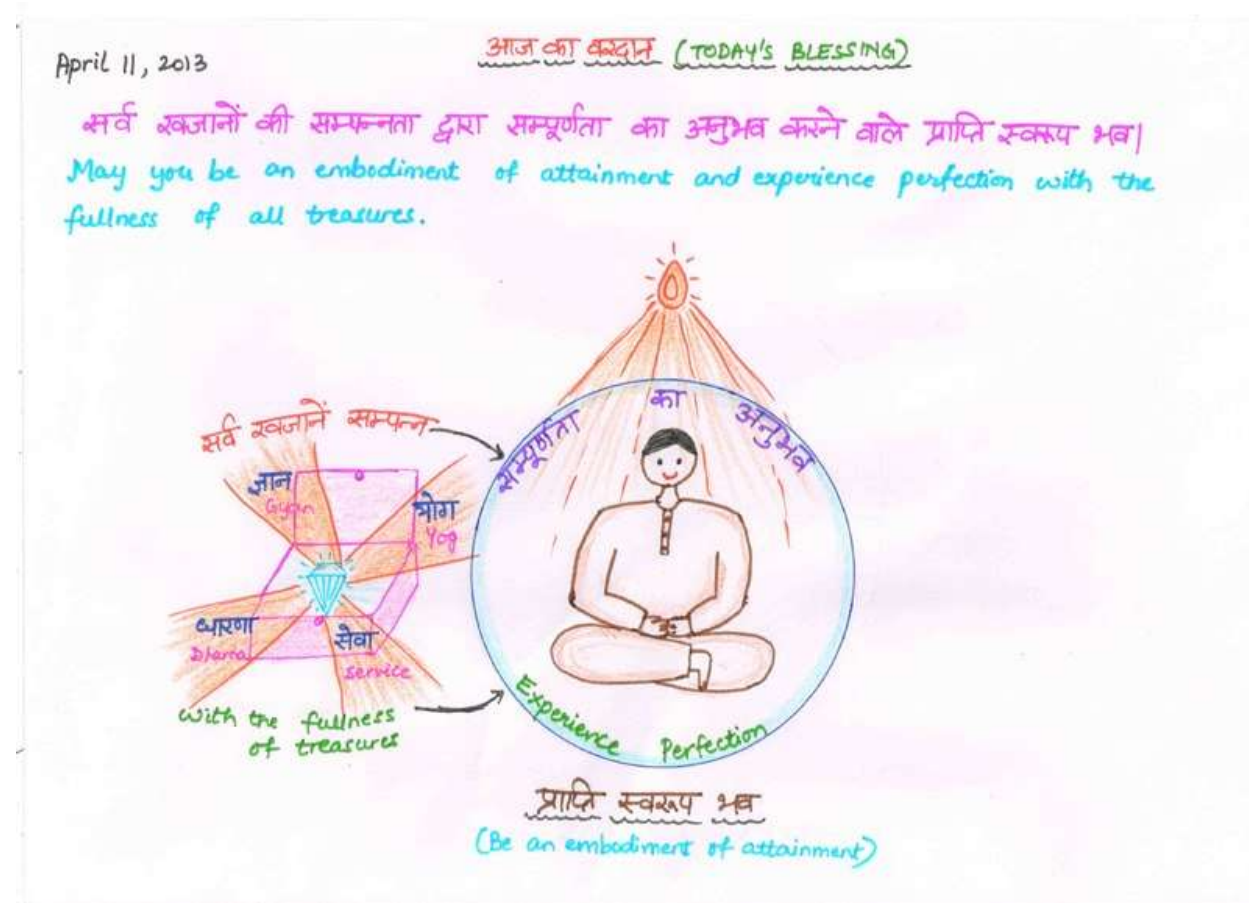 April 11, 2013
आज का वरदान (TODAY'S BLESSING)
सर्व खजानों की सम्पन्नता द्वारा सम्पूर्णता का अनुभव करने वाले प्राप्ति स्वरूप भव।
May you be an embodiment of attainment and experience perfection with the
fullness of all treasures.
सर्व खजानें सम्पन्न
सम्पूर्णता का अनुभव
ज्ञान
Gyan
योग
Yog
धारणा
Dharna
सेवा
Service
with the fullness
of treasures
Experience Perfection
प्राप्ति स्वरूप भव
(Be an embodiment of attainment)